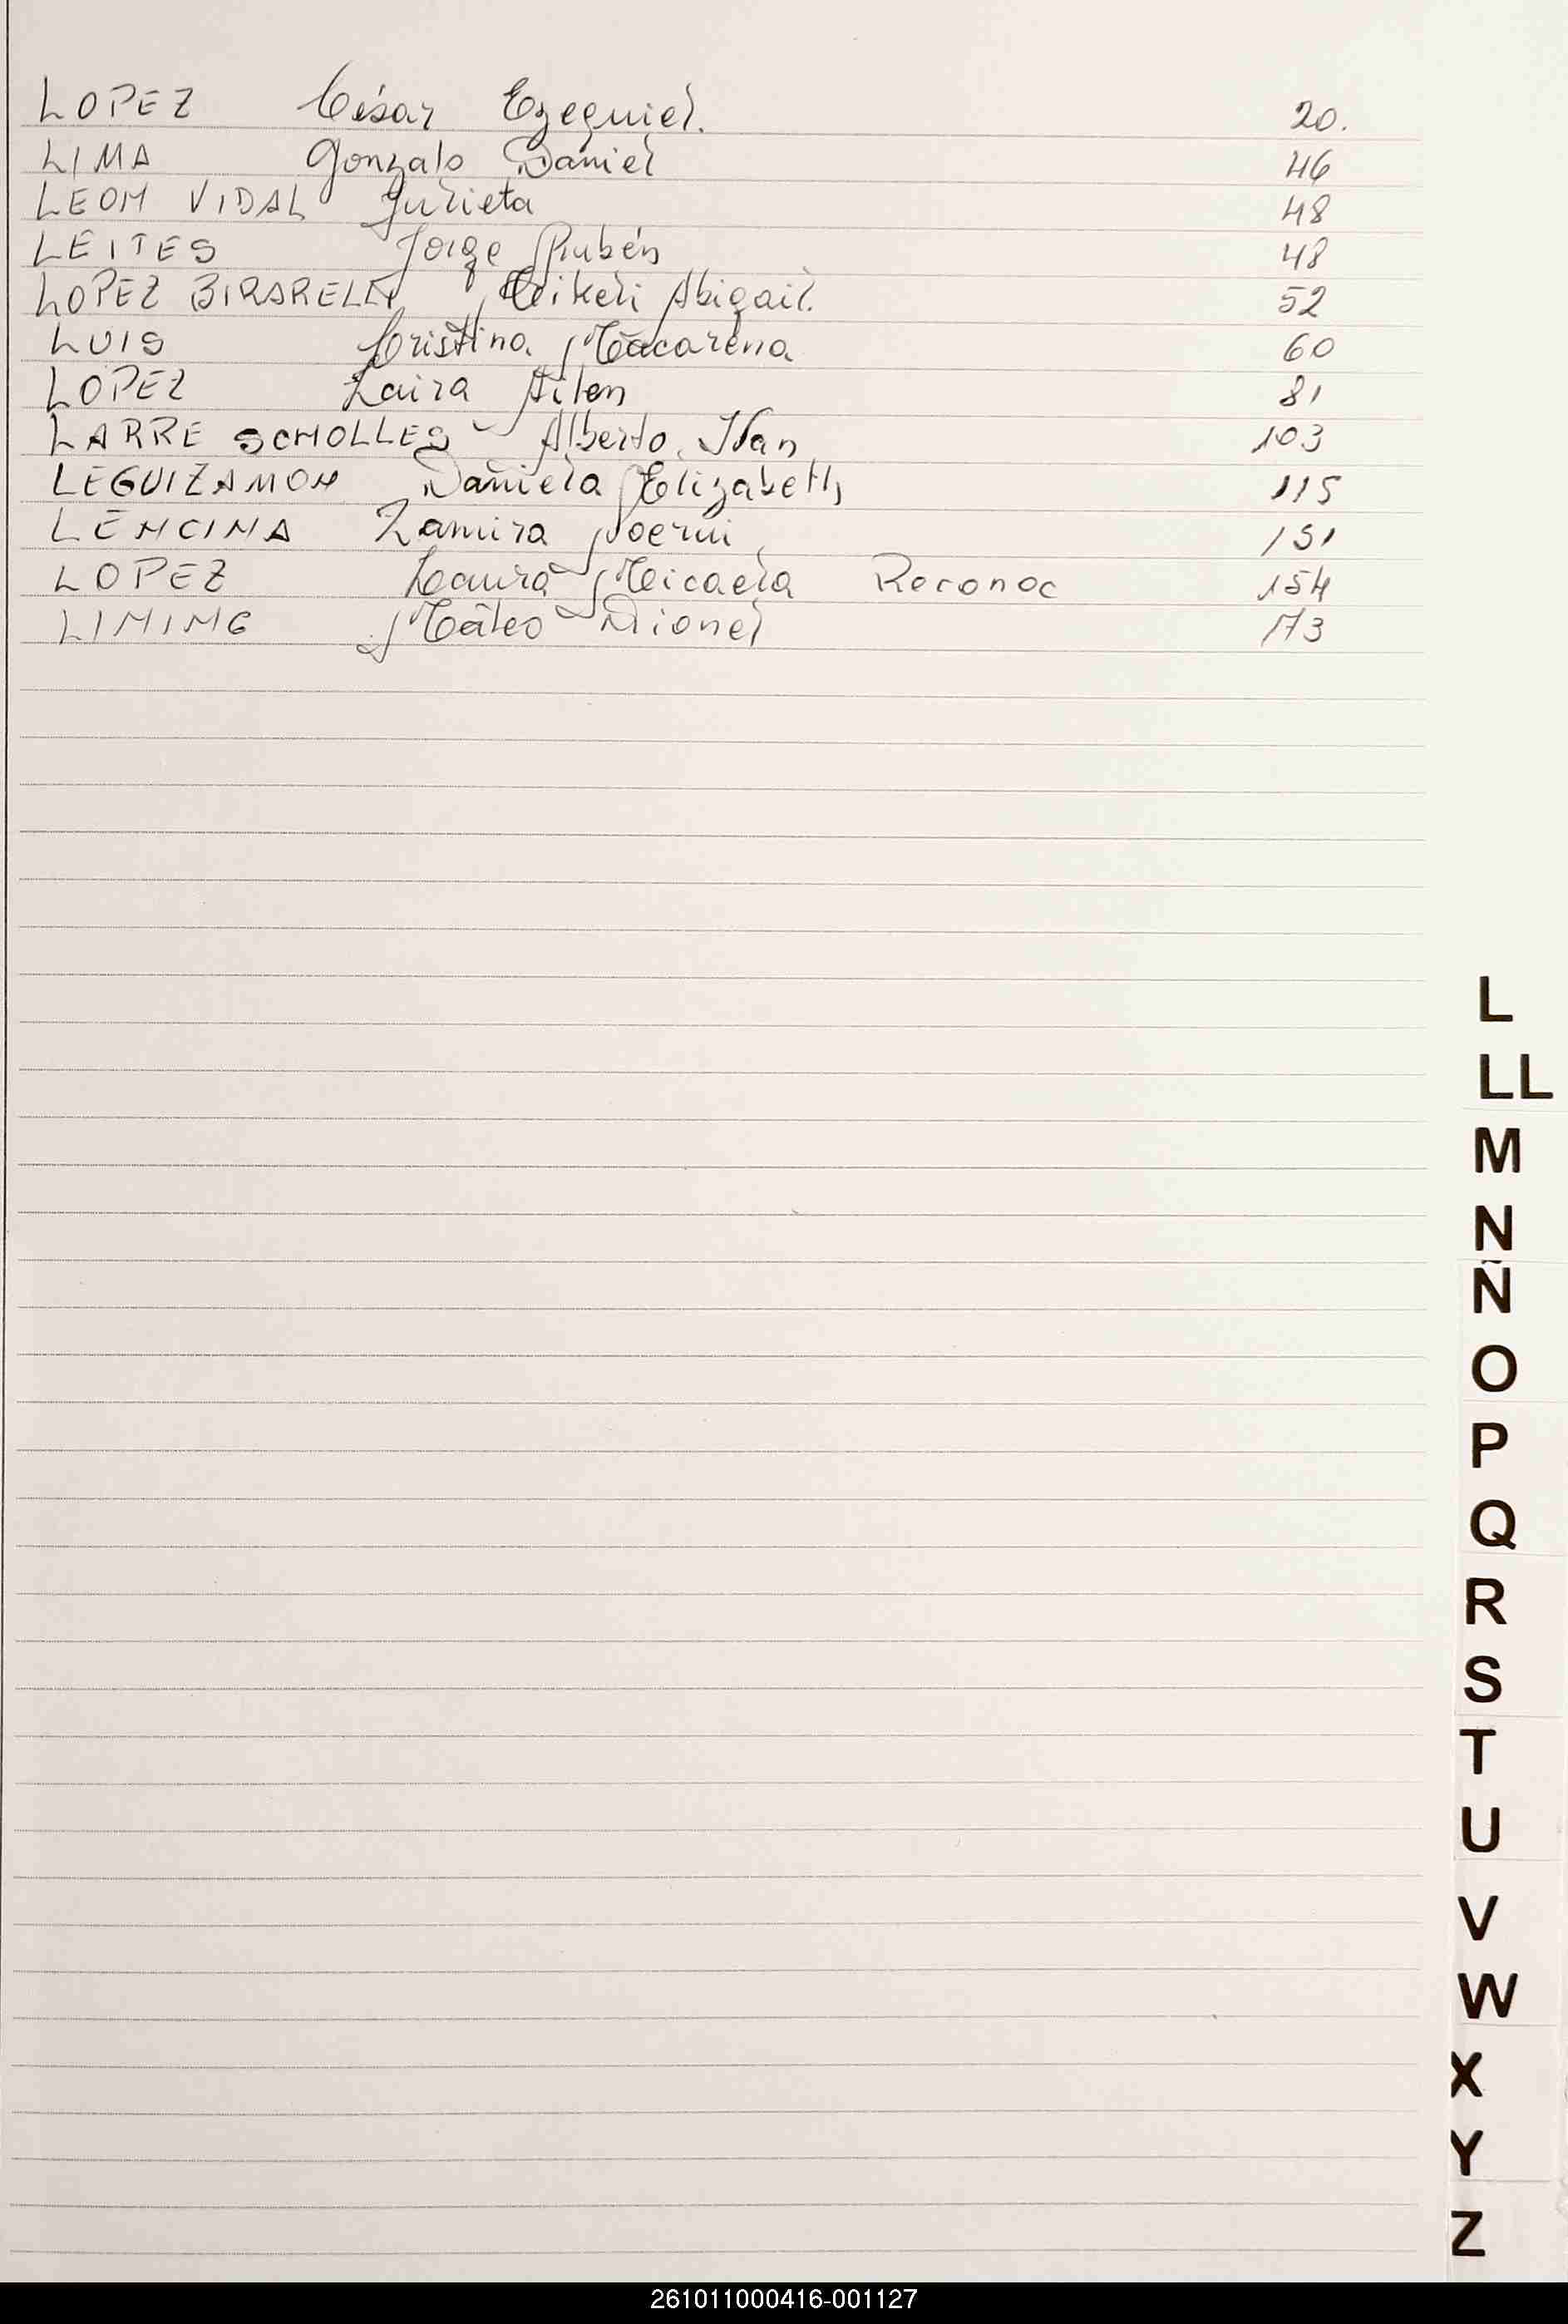 LOPEZ César Ezequiel. 20.
LIMA Gonzalo Daniel 46
LEON VIDAL Julieta 48
LEITES Jorge Rubén 48
LOPEZ BIRARELLI Abigail. 52
LUIS Cristina Macarena 60
LOPEZ Zaira Ailen 81
LARRE SCHOLLES Alberto Ivan 103
LEGUIZAMON Daniela Elizabeth 115
LENCINA Zamira Noemi 151
LOPEZ Laura Micaela Reconoc 154
LINING Mateo Dionel 173
L
LL
M
N
Ñ
O
P
Q
R
S
T
U
V
W
X
Y
Z
261011000416-001127